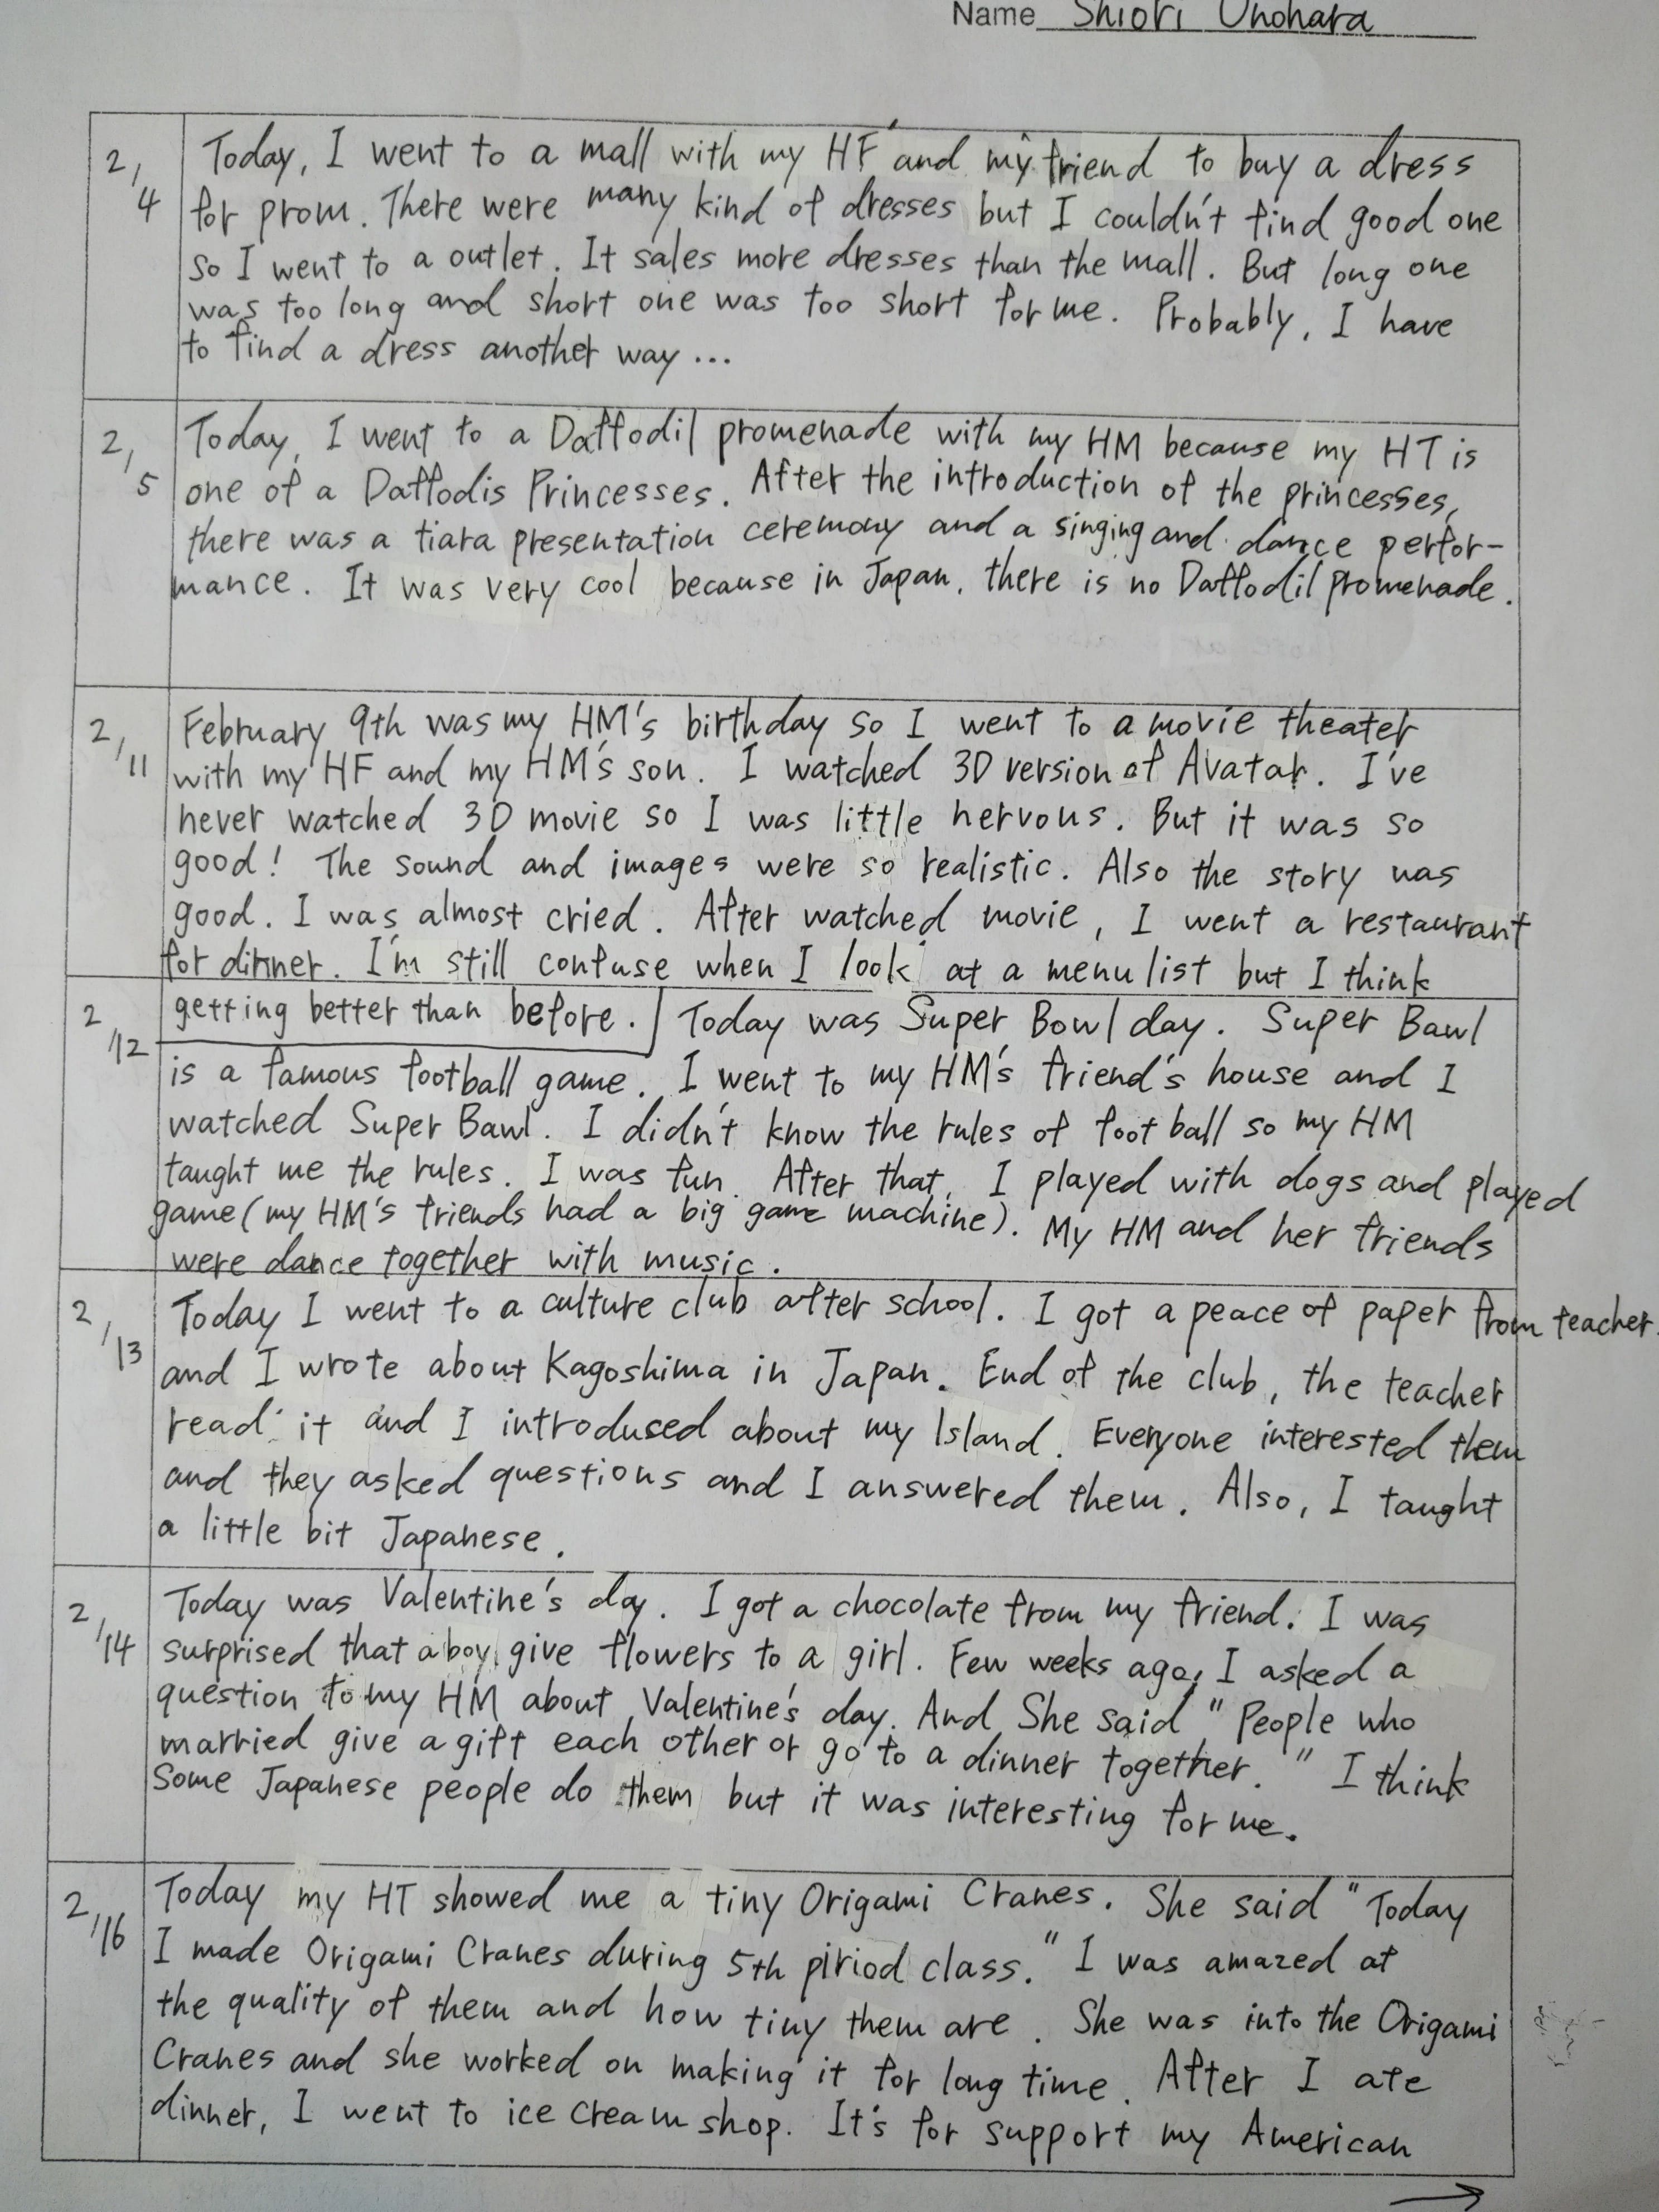 Name Shiori Unohara
2/4
Today, I went to a mall with my HF and my friend to buy a dress
for prom. There were many kind of dresses but I couldn't find good one
so I went to a outlet. It sales more dresses than the mall. But long one
was too long and short one was too short for me. Probably, I have
to find a dress another way...
2/5
Today, I went to a Daffodil promenade with my HM because my HT is
one of a Daffodis Princesses. After the introduction of the princesses,
there was a tiara presentation ceremony and a singing and dance perfor-
mance. It was very cool because in Japan, there is no Daffodil promenade.
2/11
February 9th was my HM's birthday so I went to a movie theater
with my HF and my HM's son. I watched 3D version of Avatar. I've
never watched 3D movie so I was little nervous. But it was so
good! The sound and images were so realistic. Also the story was
good. I was almost cried. After watched movie, I went a restaurant
for dinner. I'm still confuse when I look at a menu list but I think
getting better than before.
2/12
Today was Super Bowl day. Super Bawl
is a famous football game. I went to my HM's friend's house and I
watched Super Bawl. I didn't know the rules of foot ball so my HM
taught me the rules. I was fun. After that, I played with dogs and played
game (my HM's friends had a big game machine). My HM and her friends
were dance together with music.
2/13
Today I went to a culture club after school. I got a peace of paper from teacher.
and I wrote about Kagoshima in Japan. End of the club, the teacher
read it and I introdused about my Island. Everyone interested them
and they asked questions and I answered them. Also, I taught
a little bit Japanese.
2/14
Today was Valentine's day. I got a chocolate from my friend. I was
surprised that a boy give flowers to a girl. Few weeks ago, I asked a
question to my HM about Valentine's day. And She said "People who
married give a gift each other or go to a dinner together." I think
Some Japanese people do them but it was interesting for me.
2/16
Today my HT showed me a tiny Origami Cranes. She said "Today
I made Origami Cranes during 5th piriod class." I was amazed at
the quality of them and how tiny them are. She was into the Origami
Cranes and she worked on making it for long time. After I ate
dinner, I went to ice cream shop. It's for support my American
→